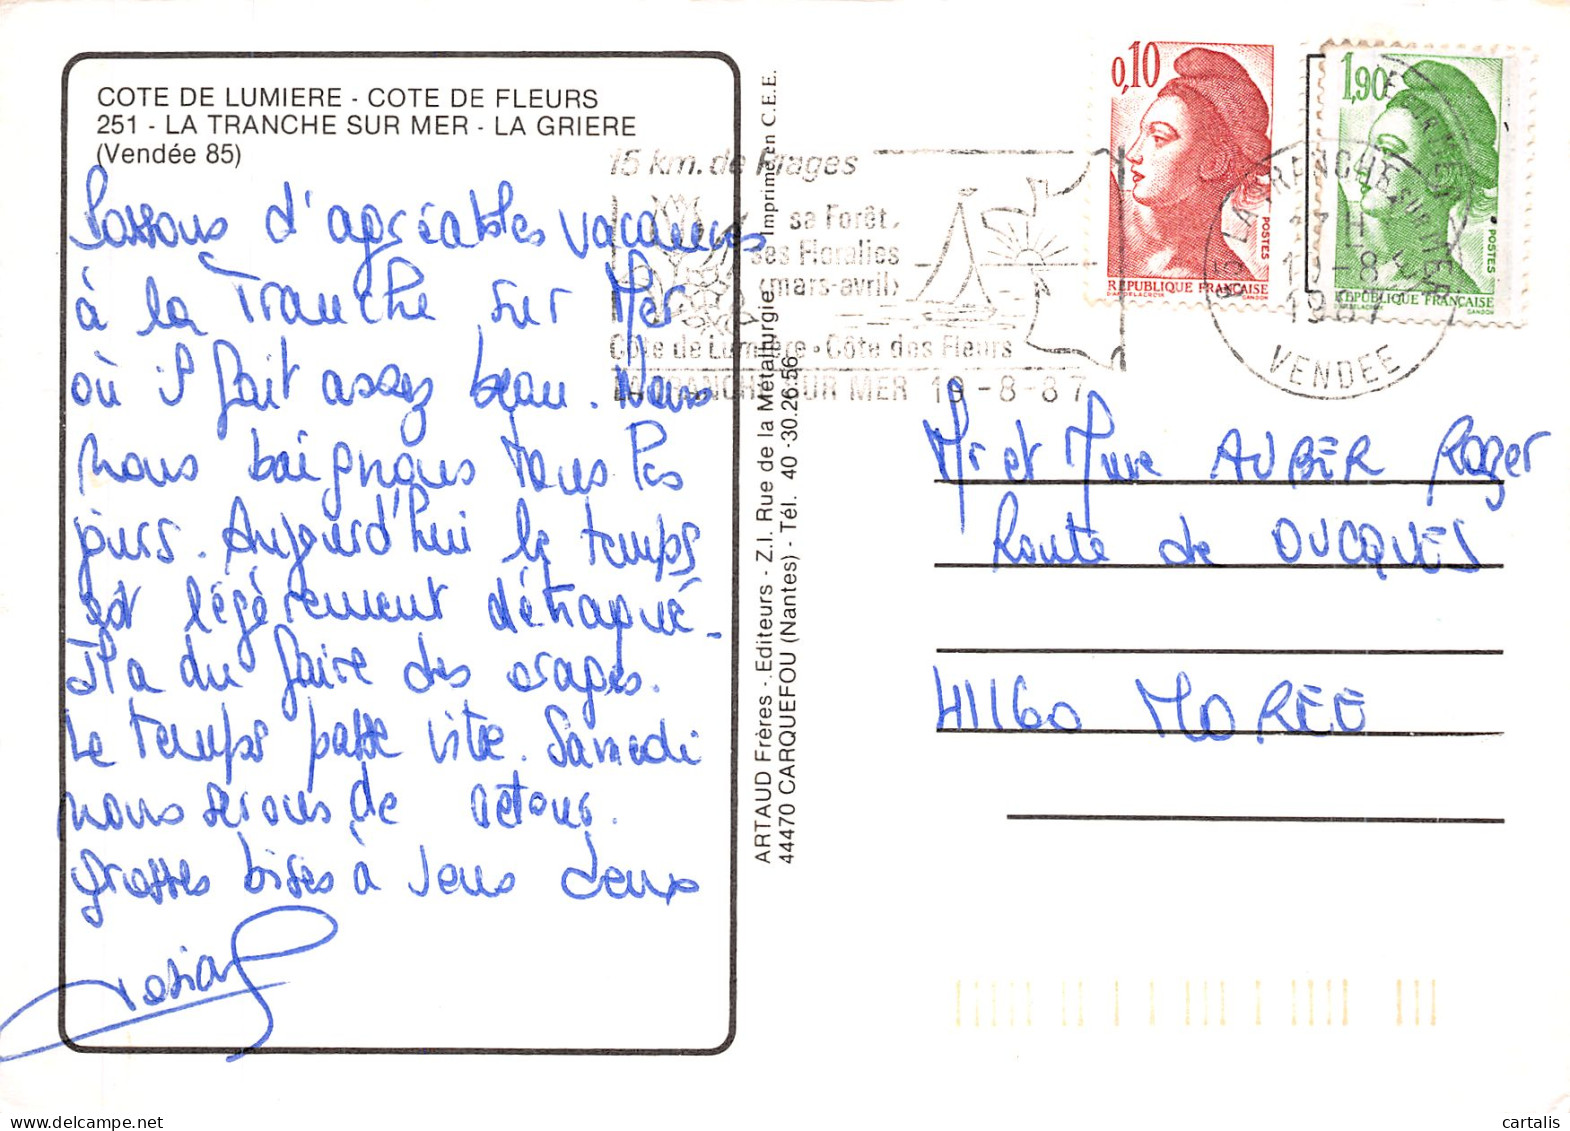 COTE DE LUMIERE - COTE DE FLEURS
251 - LA TRANCHE SUR MER - LA GRIERE
(Vendée 85)
Passons d'agréables vacances
à la Tranche sur Mer
où il fait assez beau. Nous
nous baignons tous les
jours. Aujourd'hui le temps
est légèrement détraqué.
Il a du faire des orages.
Le temps passe vite. Samedi
nous serons de retour.
grosses bises à vous deux
ARTAUD Frères - Editeurs - Z.I. Rue de la Métallurgie
44470 CARQUEFOU (Nantes) - Tél. 40 - 30.26.56
Imprimé en C.E.E.
15 km. de Plages
sa Forêt,
ses Floralies
(mars-avril)
Côte de Lumière - Côte des Fleurs
LA TRANCHE SUR MER 19-8-87
0,10
POSTES
REPUBLIQUE FRANÇAISE
D'AP. DELACROIX GANDON
1,90
POSTES
REPUBLIQUE FRANÇAISE
DELACROIX GANDON
85 LA TRANCHE SUR MER
19-8
1987
VENDEE
Mr et Mme AUBER Roger
Route de OUCQUES
41160 MORÉE
cartalis